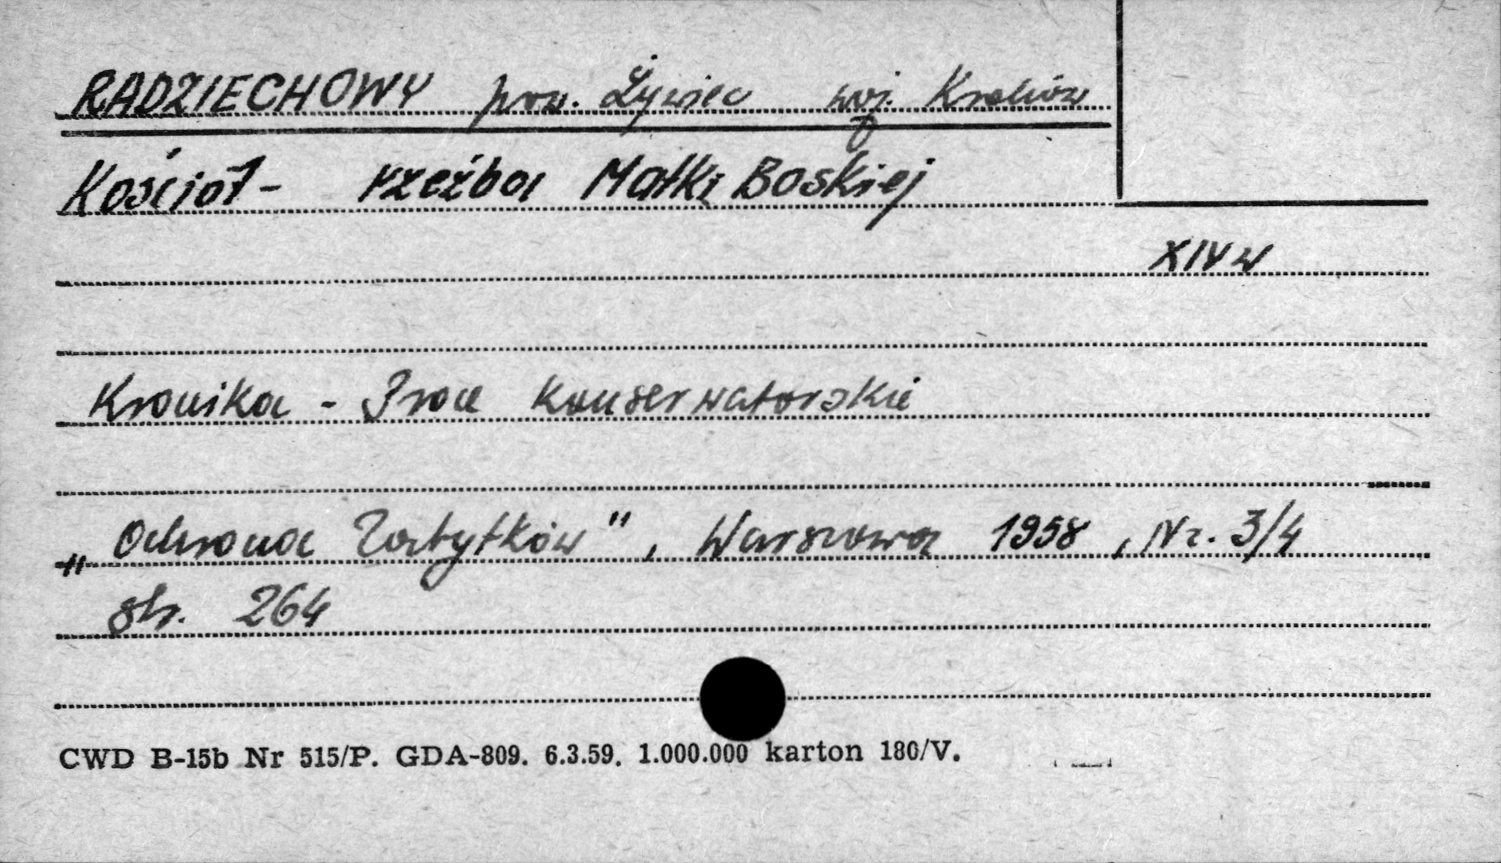 RADZIECHOWY pow. Żywiec woj. Kraków
Kościół - rzeźba Matki Boskiej
XIV w
Kronika - Prace Konserwatorskie
"Ochrona Zabytków", Warszawa 1958, Nr. 3/4
str. 264
CWD B-15b Nr 515/P. GDA-809. 6.3.59. 1.000.000 karton 180/V.